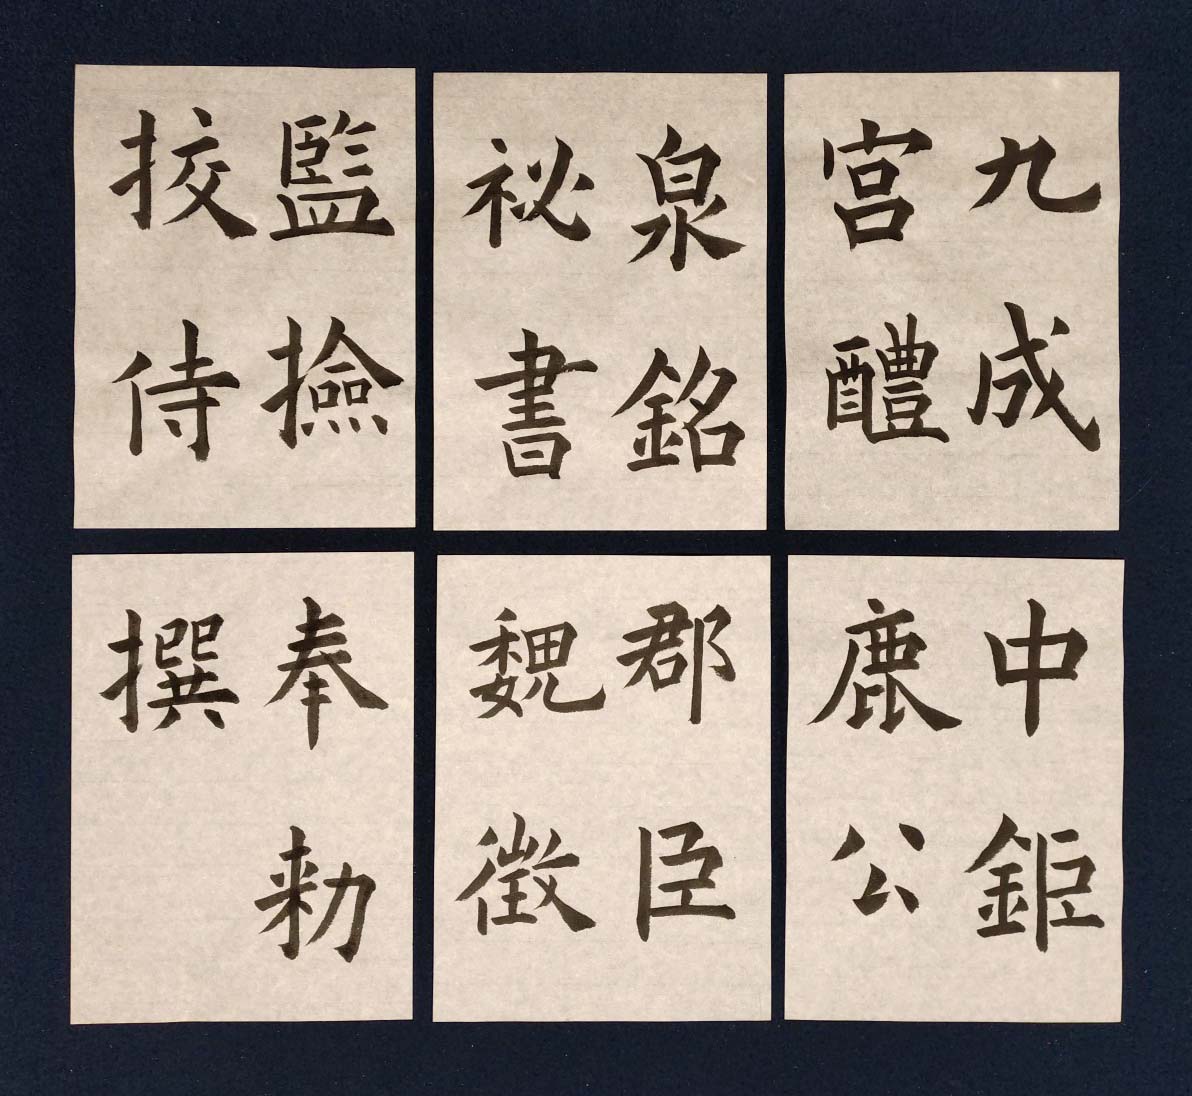 九成
宮醴
泉銘
祕書
監撿
挍侍
中鉅
鹿公
郡臣
魏徵
奉勑
撰